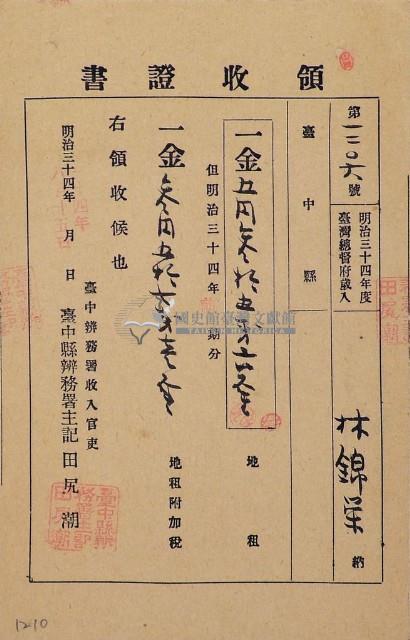 領收證書
第一二〇六號
明治三十四年度
臺灣總督府歲入
林錦
納
臺中縣
一金五円參拾五錢六厘
地租
但明治三十四年
期分
一金參円五拾
錢壱厘
地租附加稅
右領收候也
明治三十四年 月 日
臺中辨務署收入官吏
臺中縣辨務署主記 田尻潮
國史館臺灣文獻館
TAIWAN HISTORICA
1210